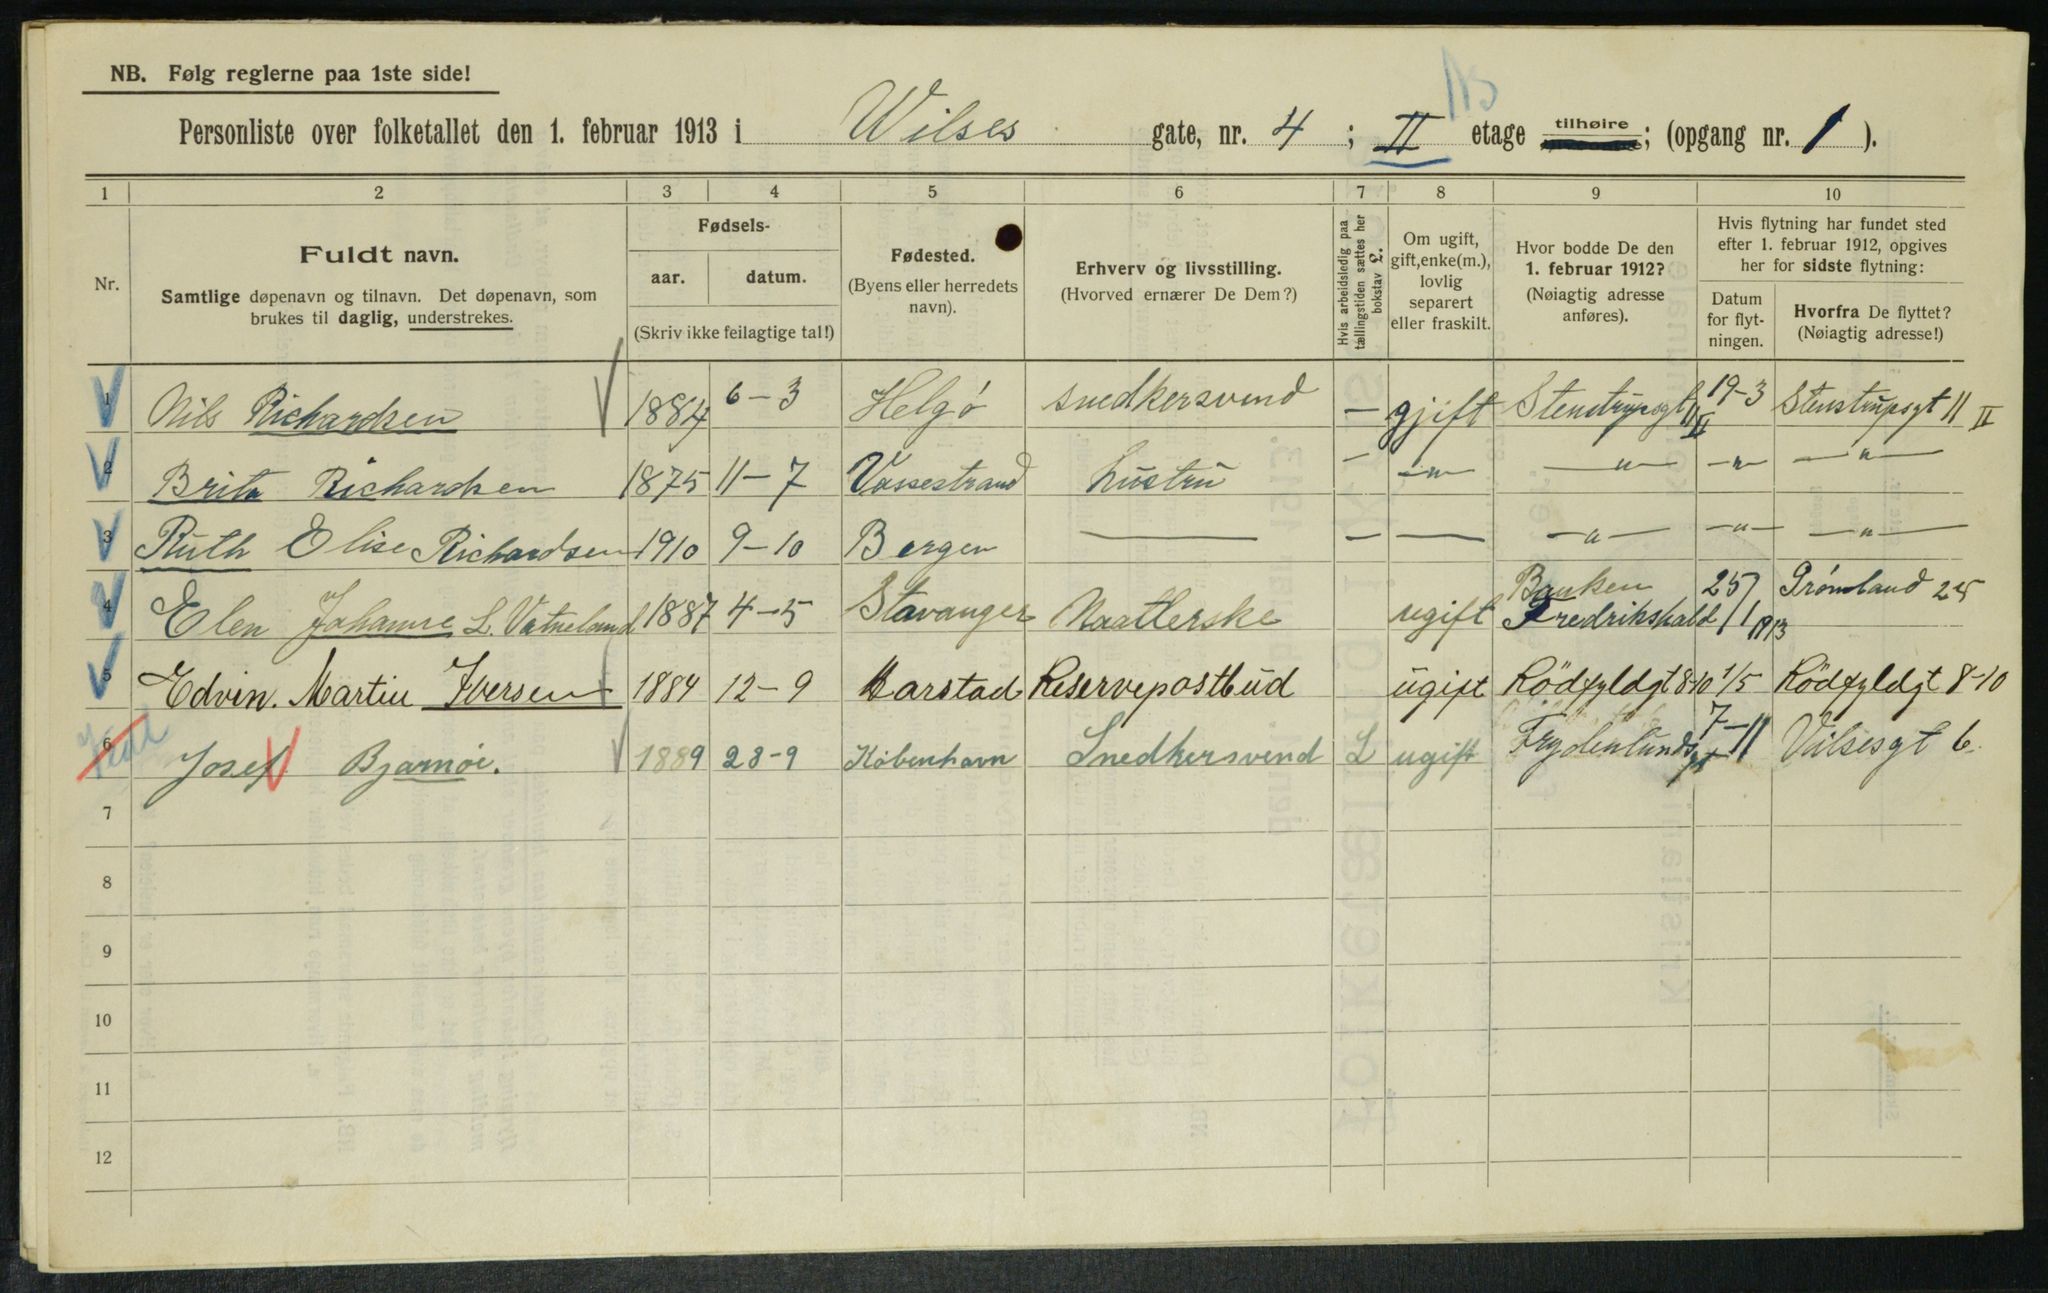 NB. Følg reglerne paa 1ste side!
Personliste over folketallet den 1. februar 1913 i Wilses gate, nr. 4 ; II etage tilhøire; (opgang nr. 1 ).
1 2 3 4 5 6 7 8 9 10
Nr.
Fuldt navn.
Samtlige døpenavn og tilnavn. Det døpenavn, som
brukes til daglig, understrekes.
Fødsels-
aar. datum.
(Skriv ikke feilagtige tal!)
Fødested.
(Byens eller herredets
navn).
Erhverv og livsstilling.
(Hvorved ernærer De Dem?)
Hvis arbeidsledig paa
tællingstiden sættes her
bokstav L.
Om ugift,
gift, enke(m.),
lovlig
separert
eller fraskilt.
Hvor bodde De den
1. februar 1912?
(Nøiagtig adresse
anføres).
Hvis flytning har fundet sted
efter 1. februar 1912, opgives
her for sidste flytning:
Datum
for flyt-
ningen.
Hvorfra De flyttet?
(Nøiagtig adresse!)
1 Nils Richardsen 1884 6-3 Helgö snedkersvend — gjift Stenstrupsgt 11 II 19-3 Stenstrupsgt 11 II
2 Brita Richardsen 1875 11-7 Vossestrand hustru — —"— —"— —"— —"—
3 Ruth Elise Richardsen 1910 9-10 Bergen — — — —"— —"— —"—
4 Elen Johanne L. Vatneland 1887 4-5 Stavanger Maatlerske ugift Banken Fredrikshald 25/1 1913 Grönland 25
5 Edvin. Martin Iversen 1884 12-9 Harstad Reservepostbud ugift Rödfyldgt 8-10 1/5 Rödfyldgt 8-10
6 Josef Bjarnöi. 1889 28-9 København Snedkersvend L ugift Frydenlunds gt 7-11 Vilsesgt 6.
7
8
9
10
11
12